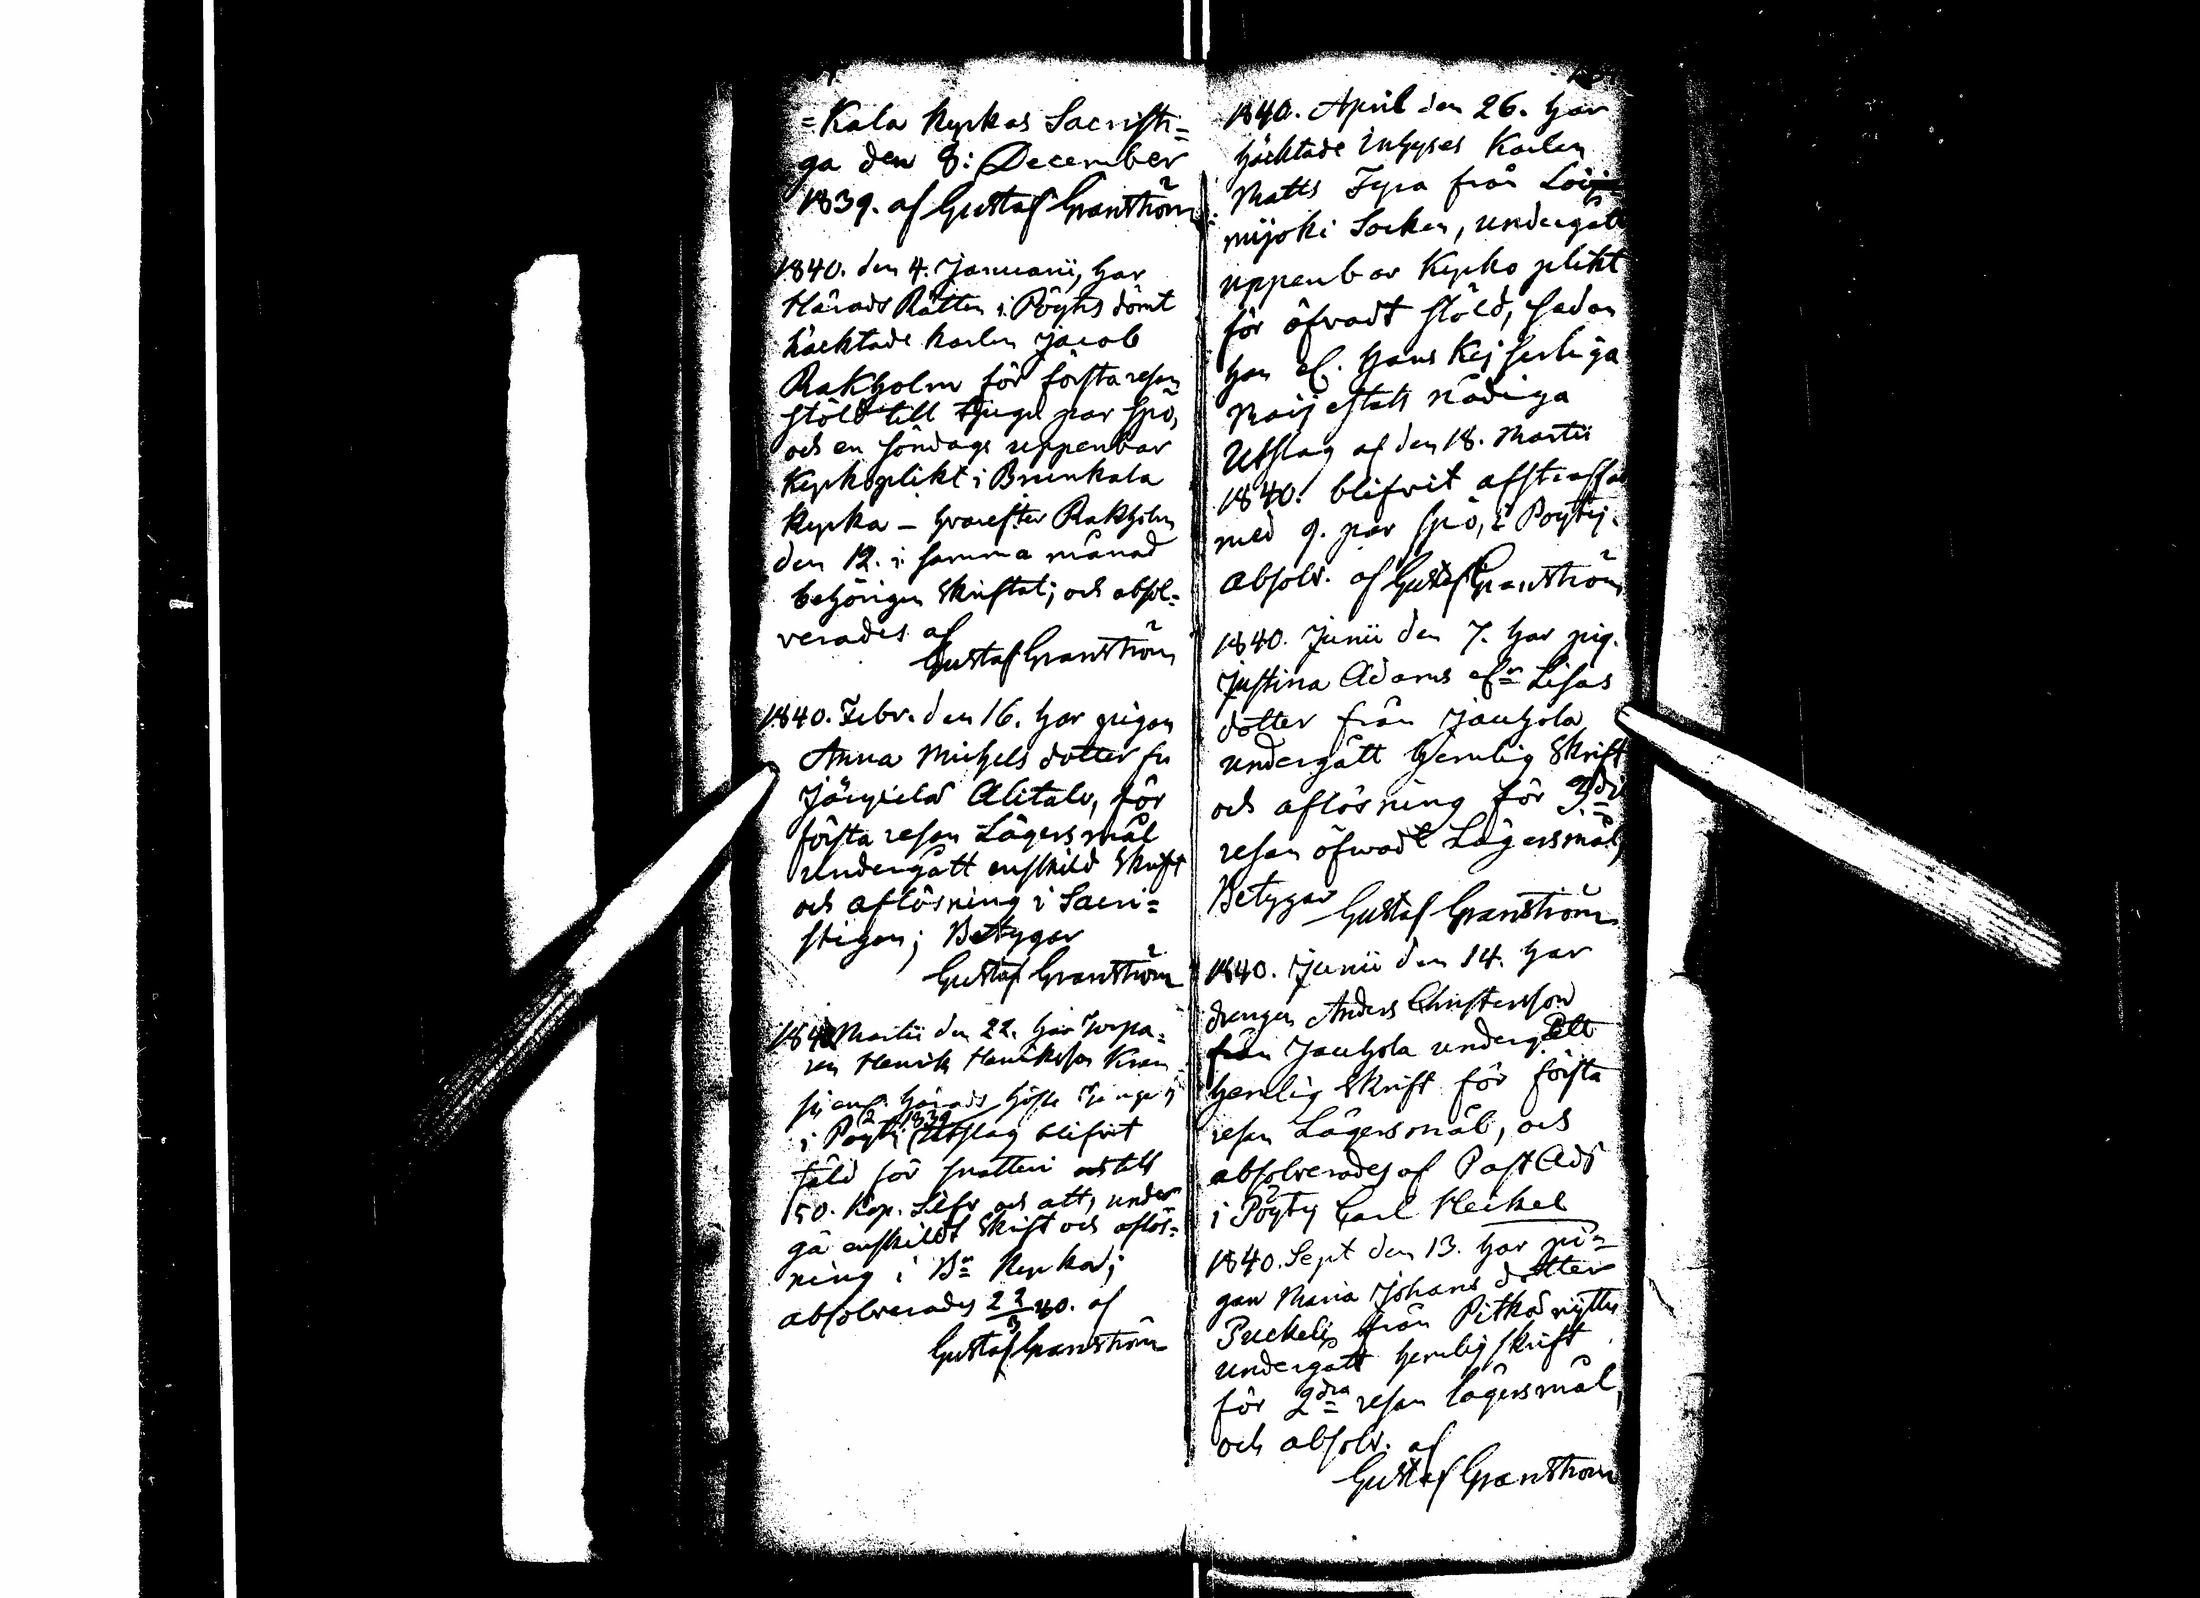 =Kala Kyrkas Sacristi=
ga den 8: December
1839. af Gustaf Granström
1840. den 4. Januarii, har
Härads Rätten i Pöytis dömt
häcktade karlen Jacob
Rakholm för första resan
stöld till tjugu par spö,
och en söndags uppenbar
Kyrkoplikt i Brunkala
Kyrka – hvarefter Rakholm
den 12. i samma månad
behörigen skriftat; och absol=
verades af
Gustaf Granström
1840. Febr. den 16. har pigan
Anna Michels dotter fr
Alitalo, för
första resan Lägersmål
undergått enskild Skrift
och aflösning i Sacri=
stigan; Betygar
Gustaf Granström
1840 Martii den 22. har Torpa=
ren Henrik Henriksson
Härads Höste Tinge
i Pöytis 1839 Utslag blifvit
fäld för snatteri
50. Kop. Silfr och att under
gå enskildt Skrift och aflös=
ning i Br Kyrka;
absolverades 22/3 40. af
Gustaf Granström
1840. April den 26. har
häcktade Inhyses Karlen
Matts Fyra från Loi
mijoki Socken, undergått
uppenbar Kyrko plikt
för öfvadt stöld, sedan
han ef. Hans Kejserliga
Maijestäts nådiga
Utslag af den 18. Martii
1840. blifvit afstraffad
med 9. par spö, i Poytij.
absolv. af Gustaf Granström
1840. Junii den 7. har pig.
Justina Adams efr Lisas
dotter från Jauhola
undergått hemlig Skrift
och aflösning för 3dje
resan öfwadt Lägersmål,
Betygar Gustaf Granström
1840. Junii den 14. har
drengen Anders Christersson
från Jauhola undergått
hemlig Skrift för första
resan Lägersmål, och
absolverades af Past Adj
i Pöyty Carl Heckel
1840. Sept den 13. har pi=
gan Maria Johans dotter
från
undergått hemlig skrift
för 2dra resan lägersmål,
och absolv. af
Gustaf Granström